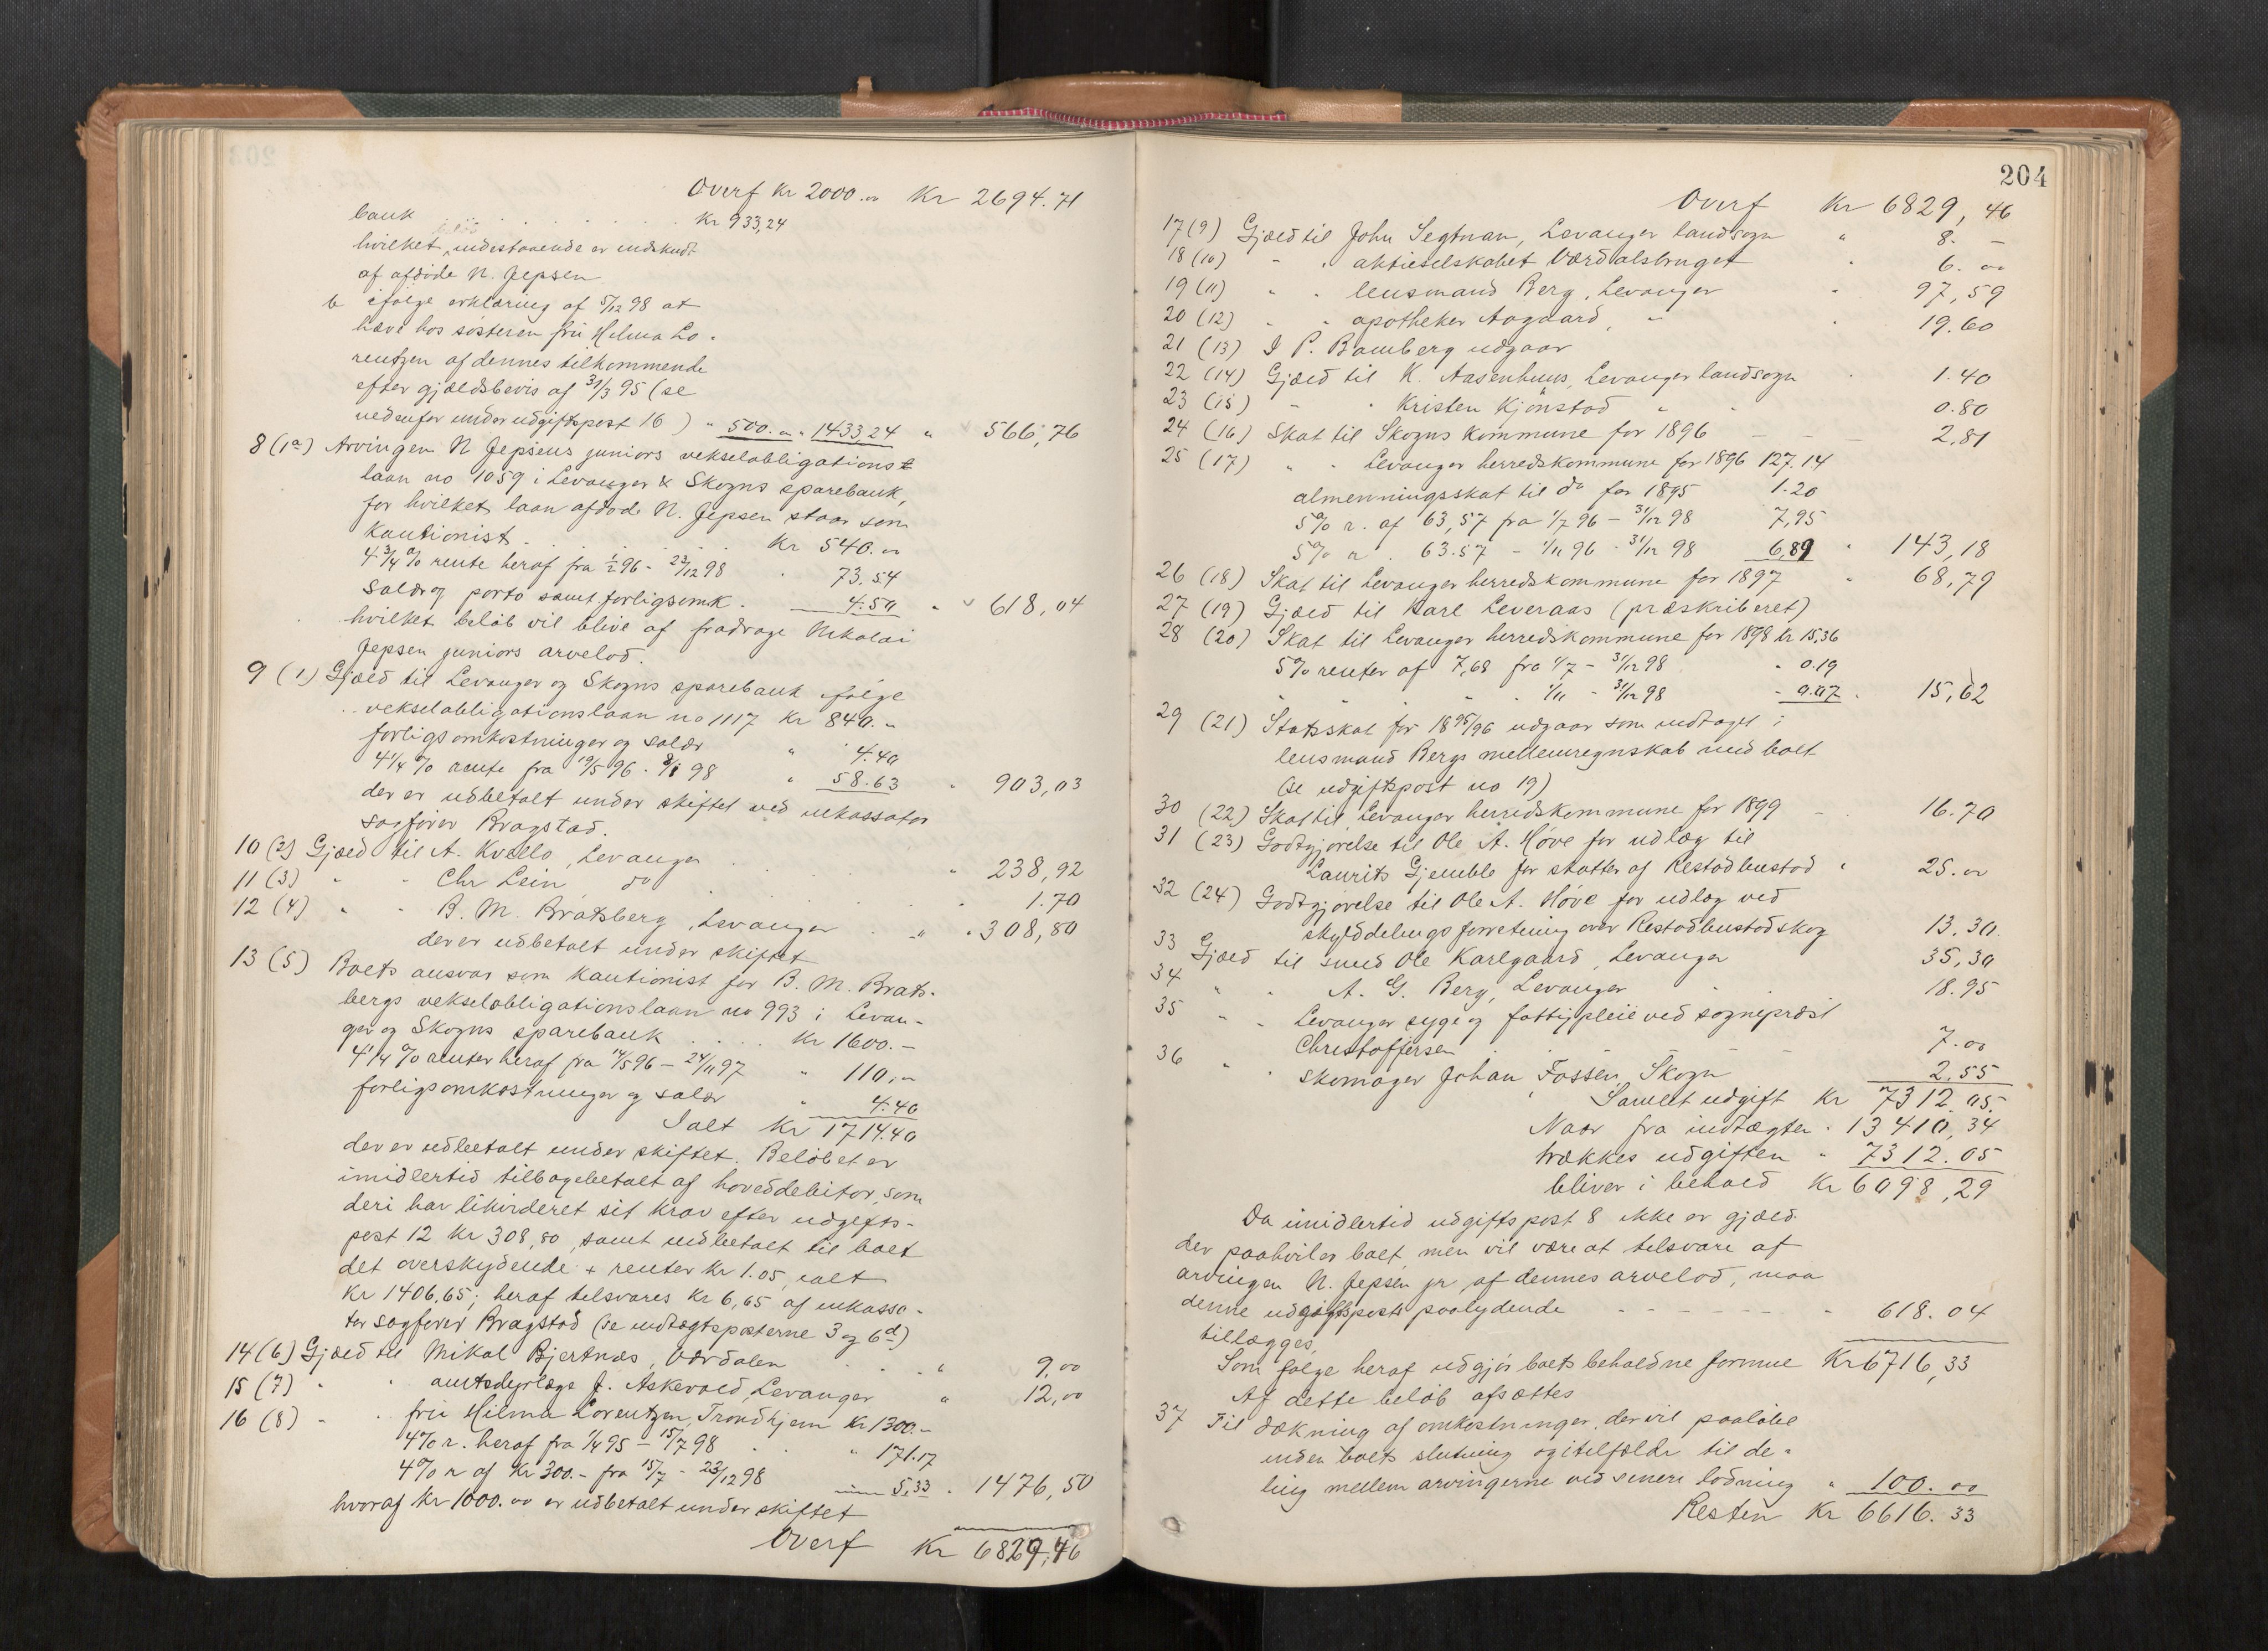 Overf Kr 2000.00 Kr 2694.71
bank . . . . . . . Kr 933,24
beløb
hvilket indestaaende er indskudt
af afdøde N. Jepsen
b ifølge erklæring af 5/12 98 at
have hos søsteren fru Hilma Lo-
rentzen af dennes tilkommende
efter gjældsbevis af 31/3 95 (se
nedenfor under udgiftspost 16) " 500.00 " 1433,24 " 566,76
8 (1a) Arvingen N Jepsens juniors vekselobligations
laan no 1059 i Levanger & Skogns sparebank,
for hvilket laan afdøde N. Jepsen staar som
kautionist . . . . . Kr 540.00
4 3/4 % rente heraf fra 1/2 96 - 23/12 98 " 73.54
Salær og porto samt forligsomk. 4.50 " 618,04
hvilket beløb vil blive af fradrage Nikolai
Jepsen juniors arvelod.
9 (1) Gjæld til Levanger og Skogns sparebank ifølge
vekselobligationslaan no 1117 Kr 840.-
forligsomkostninger og salær " 4.40
4 1/4 % rente fra 19/5 96 - 8/1 98 " 58.63 " 903,03
der er udbetalt under skiftet ved inkassator
sagfører Bragstad.
10 (2) Gjæld til A. Kvello, Levanger . " 238,92
11 (3) " " Chr Lein do . . . " 1.70
12 (4) " " B. M. Bratsberg, Levanger . " 308,80
der er udbetalt under skiftet
13 (5) Boets ansvar som kautionist for B. M. Brats-
bergs vekselobligationslaan no 993 i Levan-
ger og Skogns sparebank . . . . Kr 1600.-
4 1/4 % renter heraf fra 14/5 96 - 24/11 97 " 110,00
forligsomkostninger og salær " 4.40
Ialt Kr 1714.40
der er udbetalt under skiftet. Beløbet er
imidlertid tilbagebetalt af hoveddebitor, som
deri har likvideret sit krav efter udgifts-
post 12 Kr 308,80, samt indbetalt til boet
det overskydende + renter Kr 1.05, ialt
Kr 1406,65; heraf tilsvares Kr 6,65 af inkassa-
tor sagfører Bragstad (se indtægtsposterne 3 og 6d)
14 (6) Gjæld til Mikal Bjertnæs, Værdalen . . " 9,00
15 (7) " " amtsdyrlæge J. Askevold, Levanger " 12,00
16 (8) " " fru Hilma Lorentzen, Trondhjem Kr 1300.-
4 % r. heraf fra 1/4 95 - 15/7 98 . . " 171.17
4 % r af Kr 300.- fra 15/7 - 23/12 98 5.33 " 1476,50
hvoraf Kr 1000.00 er udbetalt under skiftet
Overf Kr 6829,46
204
Overf Kr 6829,46
17 (9) Gjæld til John Segtnan, Levanger landsogn " 8. -
18 (10) " " aktieselskabet Værdalsbruget " 6.00
19 (11) " " lensmand Berg, Levanger " 97,59
20 (12) " " apotheker Aagaard, " " 19.60
21 (13) I P. Bamberg udgaar
22 (14) Gjæld til K. Aasenhuus, Levanger landsogn " 1.40
23 (15) " " Kristen Kjönstad " " 0.80
24 (16) Skat til Skogns Kommune for 1896 - - - 2,81
25 (17) " " Levanger herredskommune for 1896 127.14
almenningsskat til do for 1895 1.20
5 % r. af 63,57 fra 1/7 96 - 31/12 98 7,95
5 % r . 63.57 - 1/11 96 - 31/12 98 6,89 " 143,18
26 (18) Skat til Levanger herredskommune for 1897 " 68,79
27 (19) Gjæld til Karl Leveraas (præskriberet)
28 (20) Skat til Levanger herredskommune for 1898 Kr 15,36
5 % renter af 7,68 fra 1/7 - 31/12 98 " 0.19
" " " " 1/11 - 31/12 98 " 0.07 " 15,62
29 (21) Statsskat for 1895/96 udgaar som indtaget i
lensmand Bergs mellemregnskab med boet
(se udgiftspost no 19)
30 (22) Skat til Levanger herredskommune for 1899 - 16.70
31 (23) Godtgjørelse til Ole A. Høve for udlæg til
Laurits Gjemble for skatter af Restadbustad " 25.00
32 (24) Godtgjørelse til Ole A. Høve for udlæg ved
skylddelingsforretning over Restadbustadskog 13.30
33 Gjæld til smed Ole Karlgaard, Levanger 35,30
34 " " A. G. Berg, Levanger " 18.95
35 " " Levanger syge og fattigpleie ved sogneprest
Christoffersen . . . . 7.00
36 " " skomager Johan Fossen, Skogn 2.55
Samlet udgift Kr 7312.05.
Naar fra indtægten " 13410,34
trækkes udgiften " 7312.05
bliver i behold Kr 6098,29
Da imidlertid udgiftspost 8 ikke er gjæld
der paahviler boet, men vil være at tilsvare af
arvingen N. Jepsen jr af dennes arvelod, maa
denne udgiftsposts paalydende - - - - - - " 618.04
tillægges
Som følge heraf udgjør boets beholdne formue Kr 6716,33
Af dette beløb afsættes
37 Til dækning af omkostninger, der vil paaløbe
inden boets slutning og i tilfælde til de-
ling mellem arvingerne ved senere lodning " 100.00
Resten Kr 6616.33